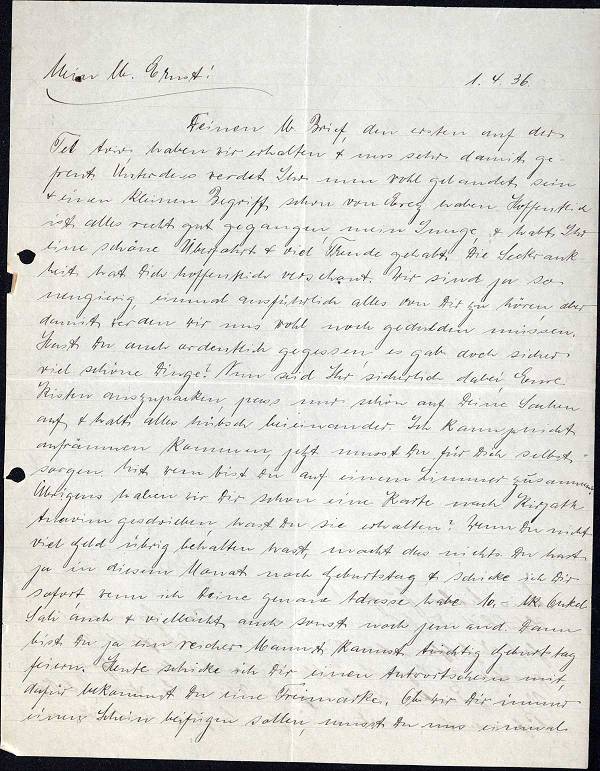 Mein lb. Ernst! 1.4.36.
Deinen lb. Brief, den ersten auf der
Tel Aviv haben wir erhalten & uns sehr damit ge-
freut. Unterdess werdet Ihr nun wohl gelandet sein
& einen kleinen Begriff schon von Erez haben. Hoffentlich
ist alles recht gut gegangen mein Junge, & habt Ihr
eine schöne Überfahrt & viel Freude gehabt. Die Seekrank
heit hat Dich hoffentlich verschont. Wir sind ja so
neugierig, einmal ausführlich alles von Dir zu hören aber
damit werden wir uns wohl noch gedulden müssen.
Hast Du auch ordentlich gegessen es gab doch sicher
viel schöne Dinge? Nun seid Ihr sicherlich dabei, Eure
Kisten auszupacken, pass nur schön auf Deine Sachen
auf & halt alles hübsch beieinander. Ich kann ja nicht
aufräumen kommen, jetzt musst Du für Dich selbst
sorgen. Mit wem bist Du auf einem Zimmer zusammen?
Übrigens haben wir Dir schon eine Karte nach Kirjath
Anavim geschrieben hast Du sie erhalten? Wenn Du nicht
viel Geld übrig behalten hast, macht das nichts. Du hast
ja in diesem Monat noch Geburtstag & schicke ich Dir
sofort, wenn ich Deine genaue Adresse habe 10.- Mk. Onkel
Sali auch & vielleicht auch sonst noch jemand. Dann
bist Du ja ein reicher Mann & kannst tüchtig Geburtstag
feiern. Heute schicke ich Dir einen Antwortschein mit,
dafür bekommst Du eine Freimarke. Ob wir Dir immer
einen Schein beifügen sollen, musst Du uns einmal